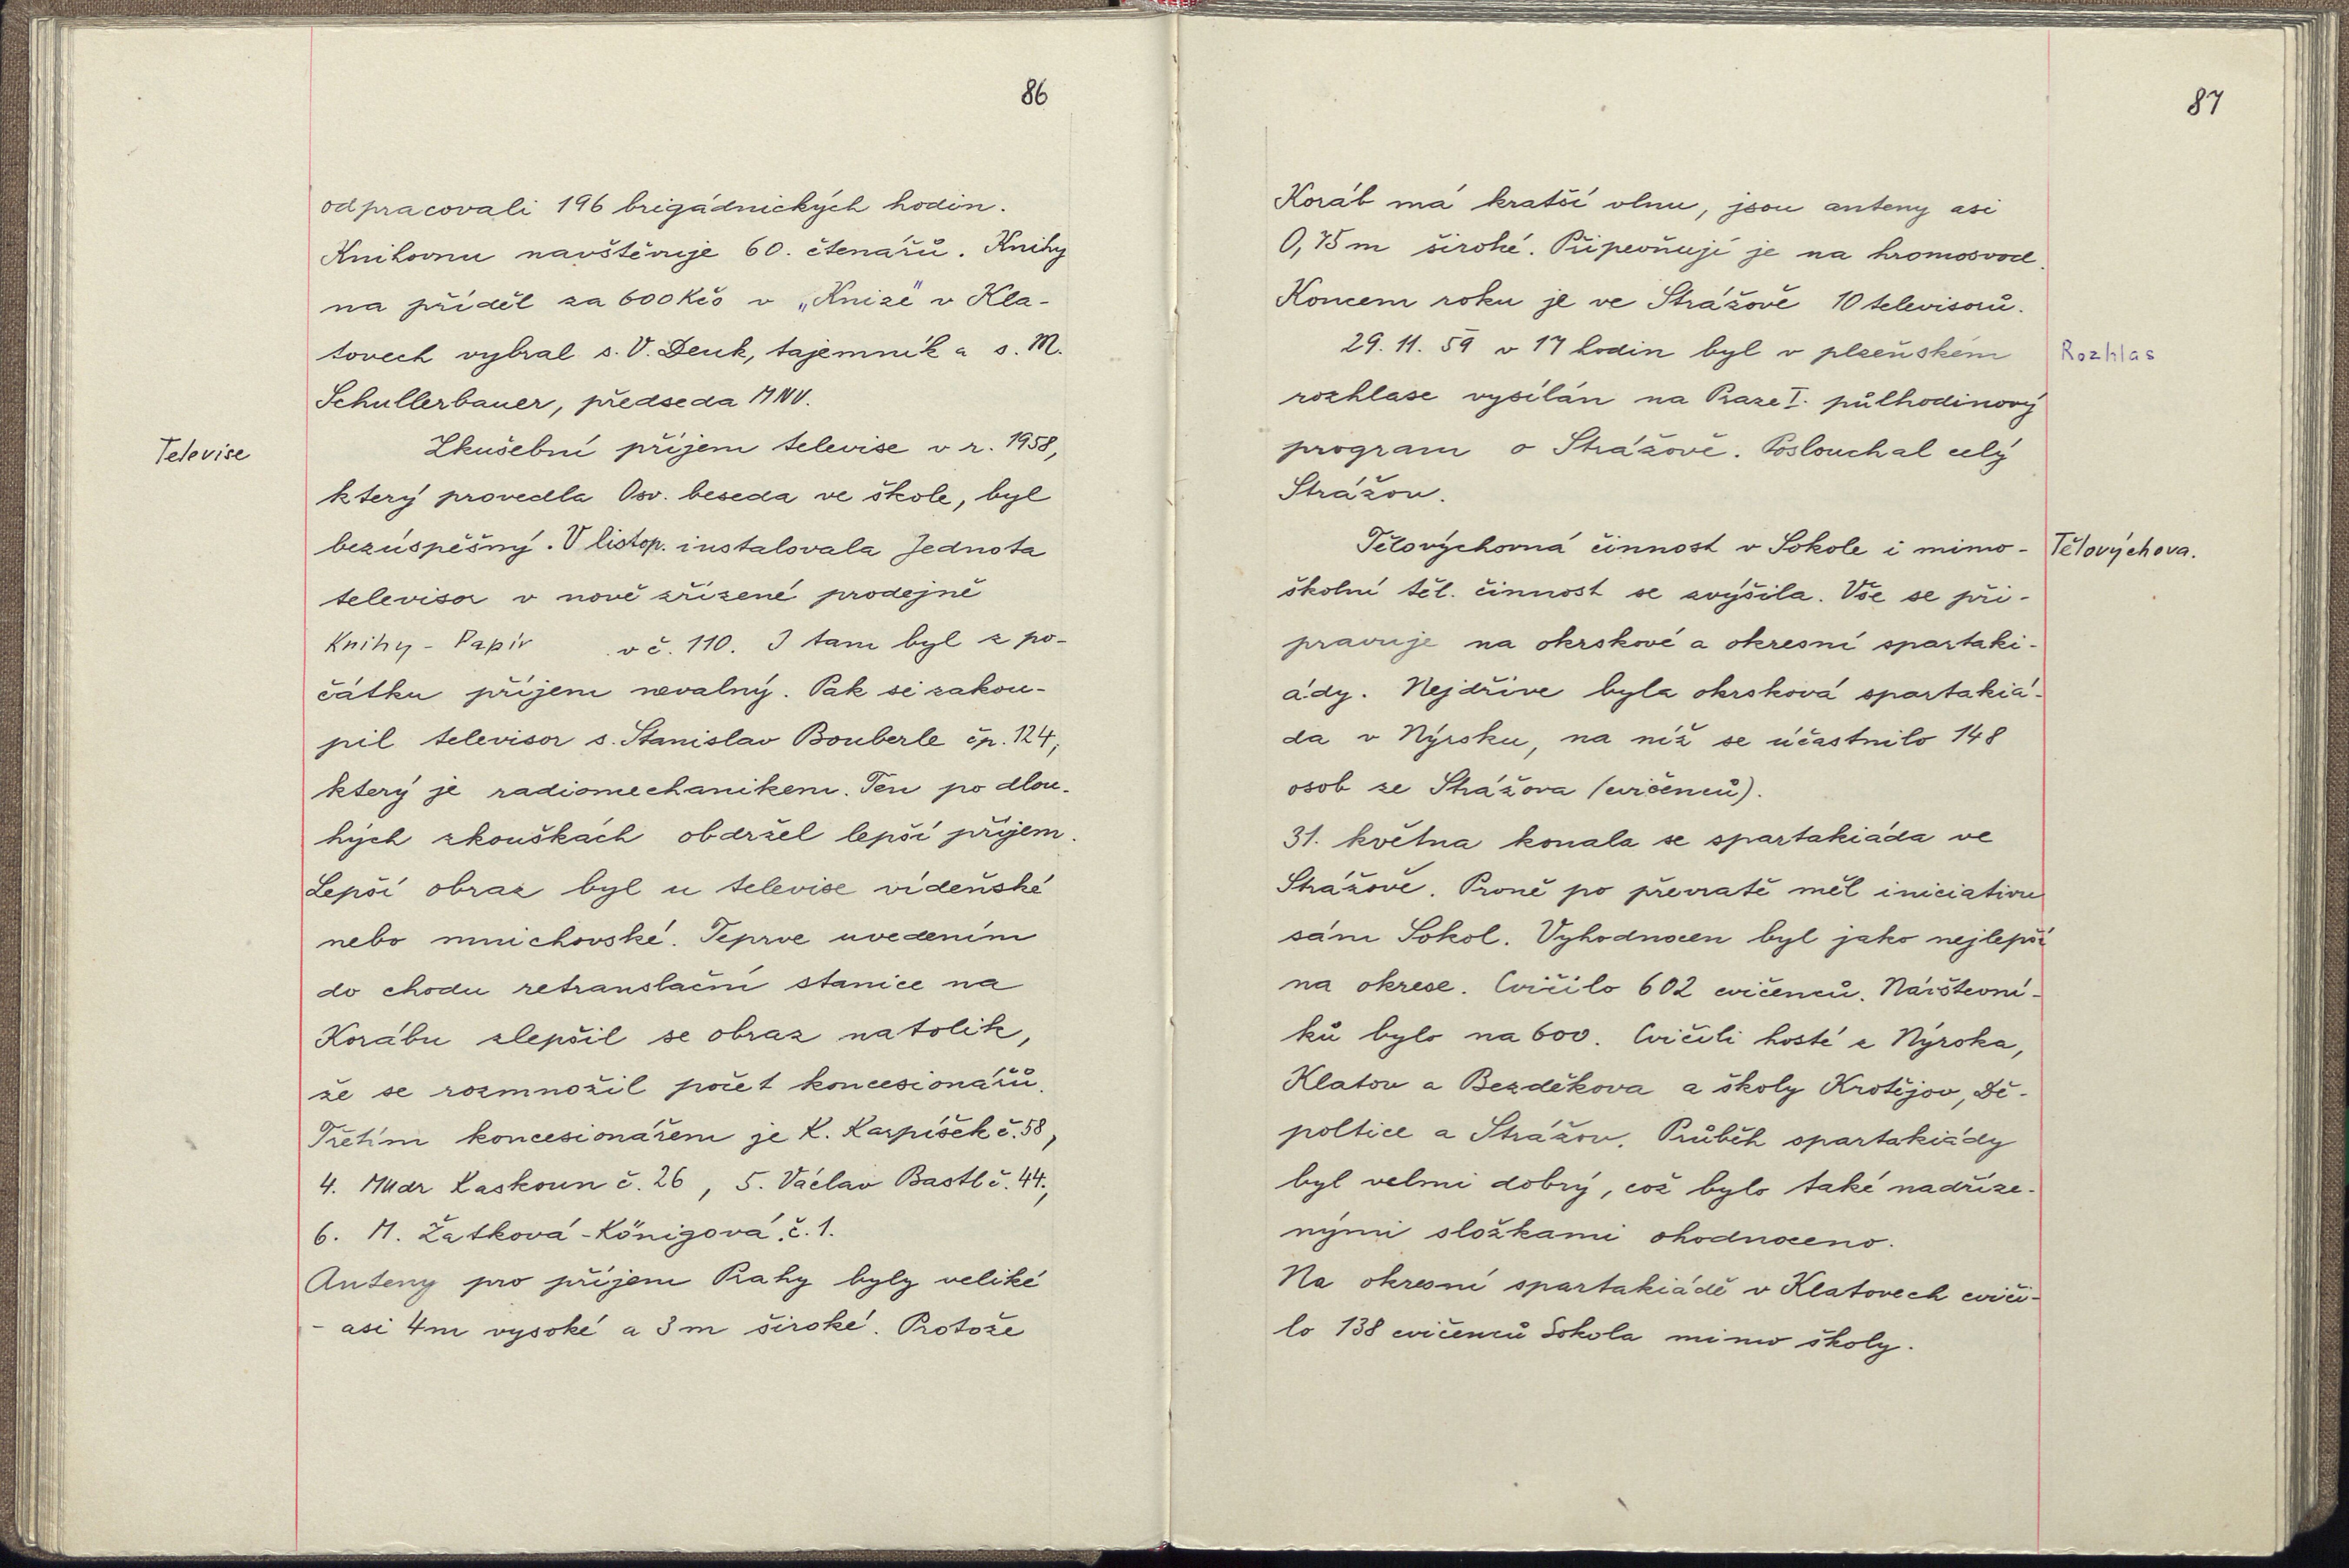 86
odpracovali 196 brigádnických hodin.
Knihovnu navštěvuje 60. čtenářů. Knihy
na příděl za 600 Kčs v „Knize" v Kla-
tovech vybral s. V. Denk, tajemník a s. M.
Schullerbauer, předseda MNV.
Televise
Zkušební příjem televise v r. 1958,
který provedla Osv. beseda ve škole, byl
bezúspěšný. V listop. instalovala Jednota
televisor v nově zřízené prodejně
Knihy - Papír v č. 110. I tam byl z po-
čátku příjem nevalný. Pak si zakou-
pil televisor s. Stanislav Bouberle čp. 124,
který je radiomechanikem. Ten po dlou-
hých zkouškách obdržel lepší příjem.
Lepší obraz byl u televise vídeňské
nebo mnichovské. Teprve uvedením
do chodu retranslační stanice na
Korábu zlepšil se obraz natolik,
že se rozmnožil počet koncesionářů.
Třetím koncesionářem je K. Karpíšek č. 58,
4. Mudr Laskoun č. 26, 5. Václav Bastl č. 44,
6. M. Žatková-Königová č. 1.
Anteny pro příjem Prahy byly veliké
- asi 4m vysoké a 3m široké. Protože
87
Koráb má kratší vlnu, jsou anteny asi
0,75m široké. Připevňují je na hromosvod.
Koncem roku je ve Strážově 10 televisorů.
29. 11. 59 v 17 hodin byl v plzeňském
Rozhlas
rozhlase vysílán na Praze I. půlhodinový
program o Strážově. Poslouchal celý
Strážov.
Tělovýchovná činnost v Sokole i mimo-
Tělovýchova.
školní těl. činnost se zvýšila. Vše se při-
pravuje na okrskové a okresní spartaki-
ády. Nejdříve byla okrsková spartakiá-
da v Nýrsku, na níž se účastnilo 148
osob ze Strážova (cvičenců).
31. května konala se spartakiáda ve
Strážově. Prvně po převratě měl iniciativu
sám Sokol. Vyhodnocen byl jako nejlepší
na okrese. Cvičilo 602 cvičenců. Návštevní-
ků bylo na 600. Cvičili hosté z Nýrska,
Klatov a Bezděkova a školy Krotějov, Dě-
poltice a Strážov. Průběh spartakiády
byl velmi dobrý, což bylo také nadříze-
nými složkami ohodnoceno.
Na okresní spartakiádě v Klatovech cviči-
lo 138 cvičenců Sokola mimo školy.